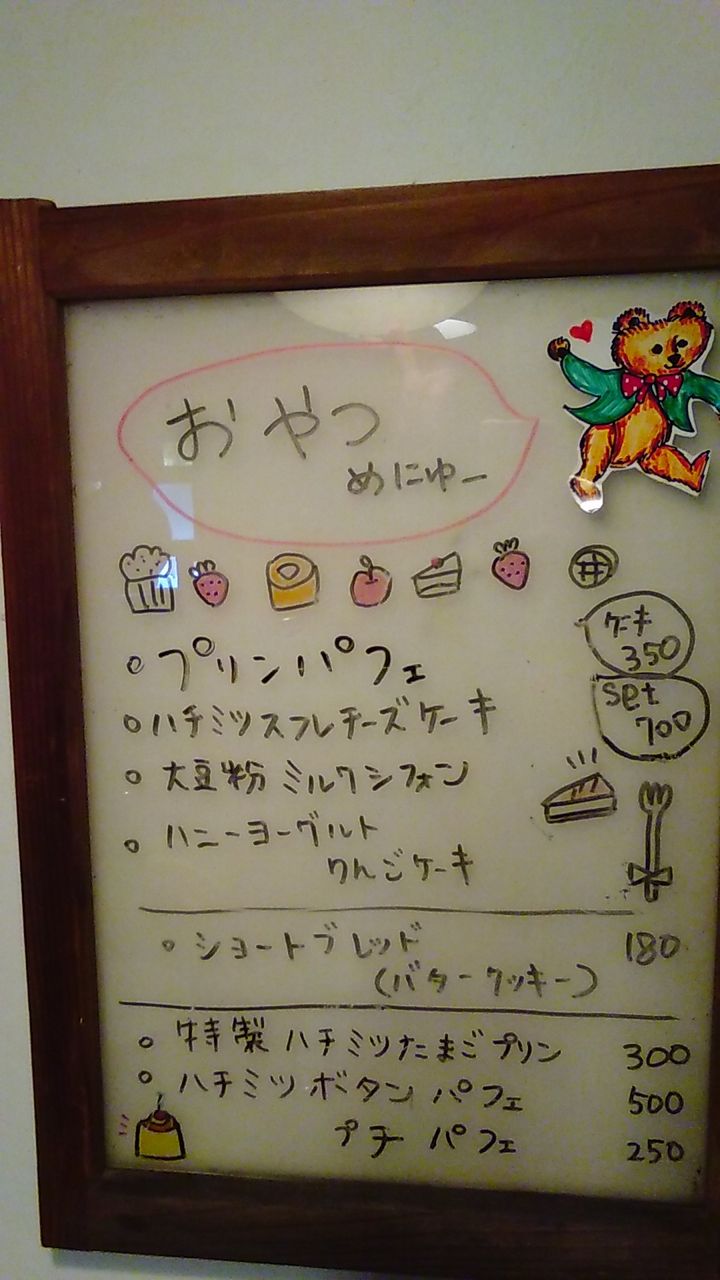 おやつ
めにゅー
ケーキ
350
set
700
プリンパフェ
ハチミツスフレチーズケーキ
大豆粉ミルクシフォン
ハニーヨーグルト
りんごケーキ
ショートブレッド 180
(バタークッキー)
特製ハチミツたまごプリン 300
ハチミツボタンパフェ 500
プチパフェ 250